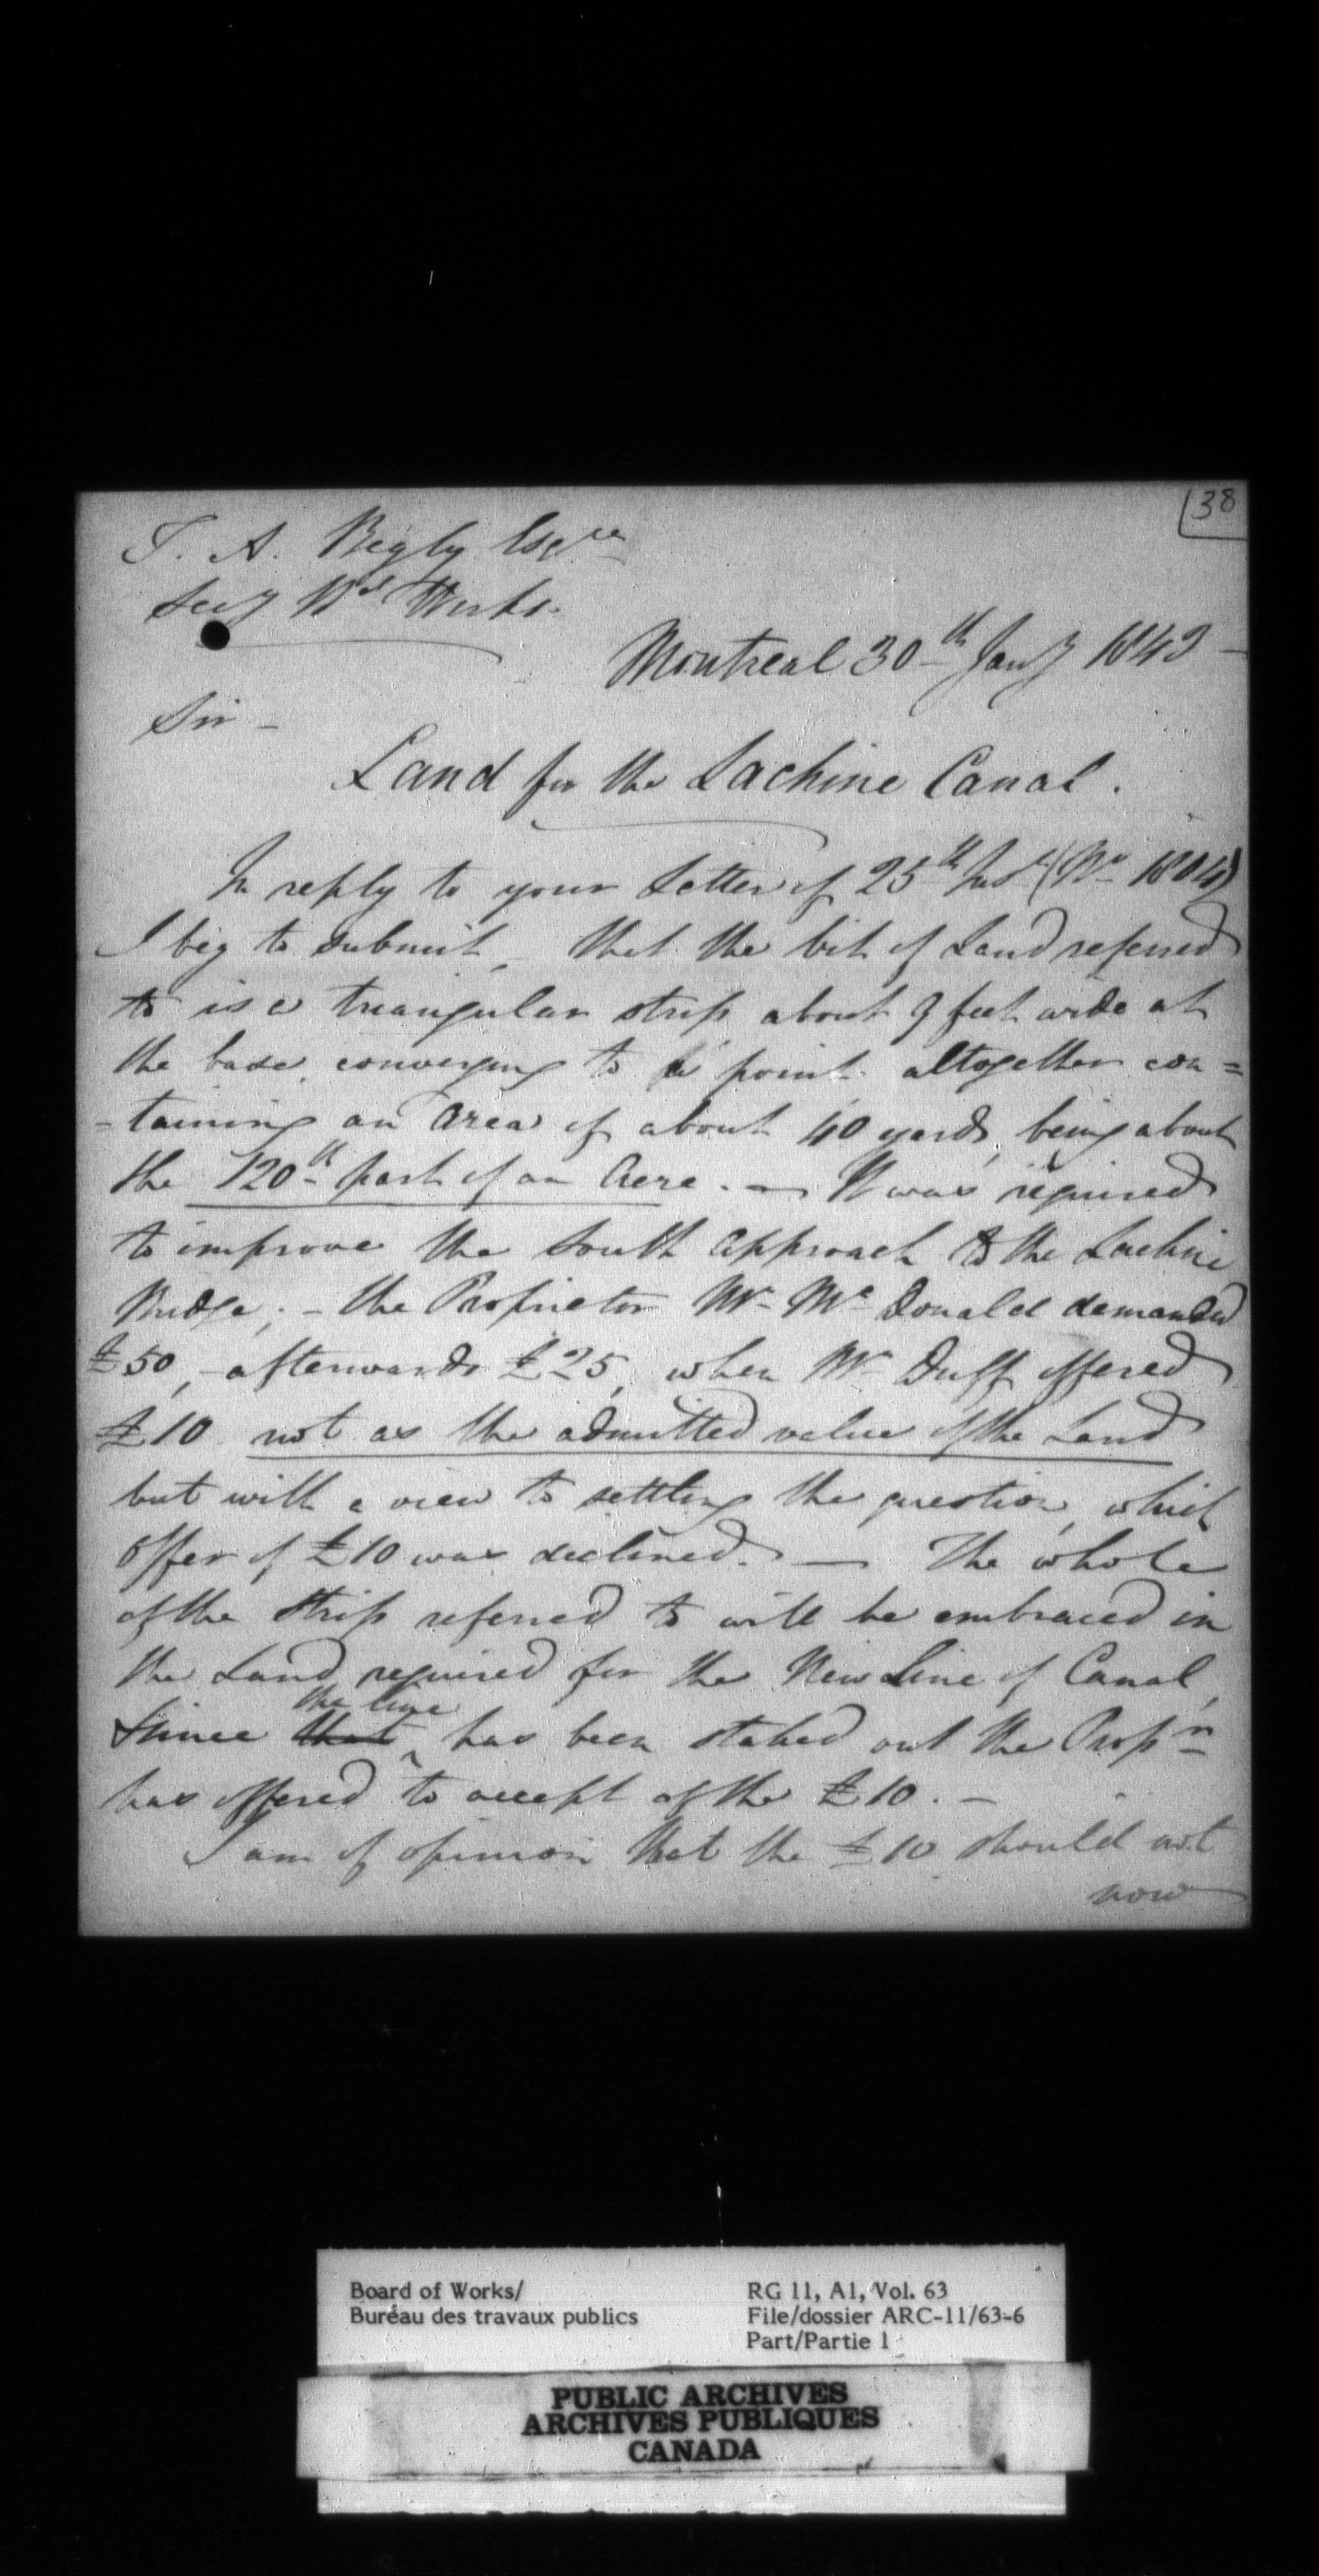 38
T. A. Begly Esqre
Secy Bd Works.
Montreal 30th Jany 1843 -
Sir -
Land for the Lachine Canal.
In reply to your Letter of 25th Inst (No 1804)
I beg to submit, - that the bit of Land referred
to is a triangular strip about 9 feet wide at
the base converging to a point altogether con=
=taining an Area of about 40 yards, being about
the 120th part of an Acre. - It was required
to improve the South Approach to the Lachine
Bridge; - the Proprietor Mr Mc Donald demanded
£50, - afterwards £25, when Mr Duff offered
£10 not as the admitted value of the Land
but with a view to settling the question, which
offer of £10 was declined. - The whole
of the Strip referred to will be embraced in
the Land required for the New Line of Canal,
the line
Since that has been staked out the Propr
has offered to accept of the £10. -
I am of opinion that the £10 should not
now
Board of Works/
Bureau des travaux publics
RG 11, A1, Vol. 63
File/dossier ARC-11/63-6
Part/Partie 1
PUBLIC ARCHIVES
ARCHIVES PUBLIQUES
CANADA